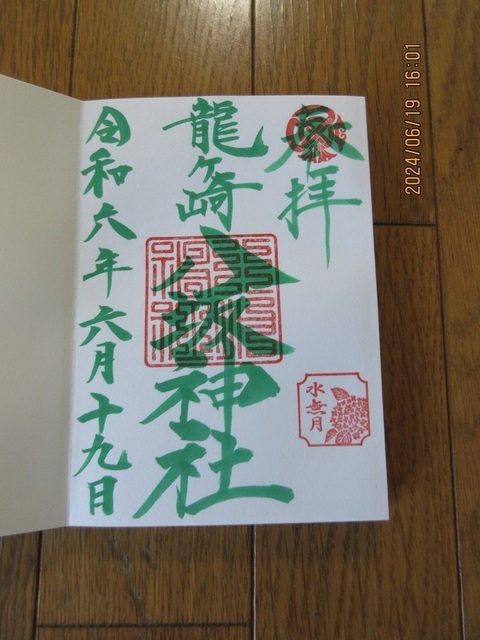 奉拝
龍ヶ崎
八坂神社
水無月
令和六年六月十九日
2024/06/19 16:01